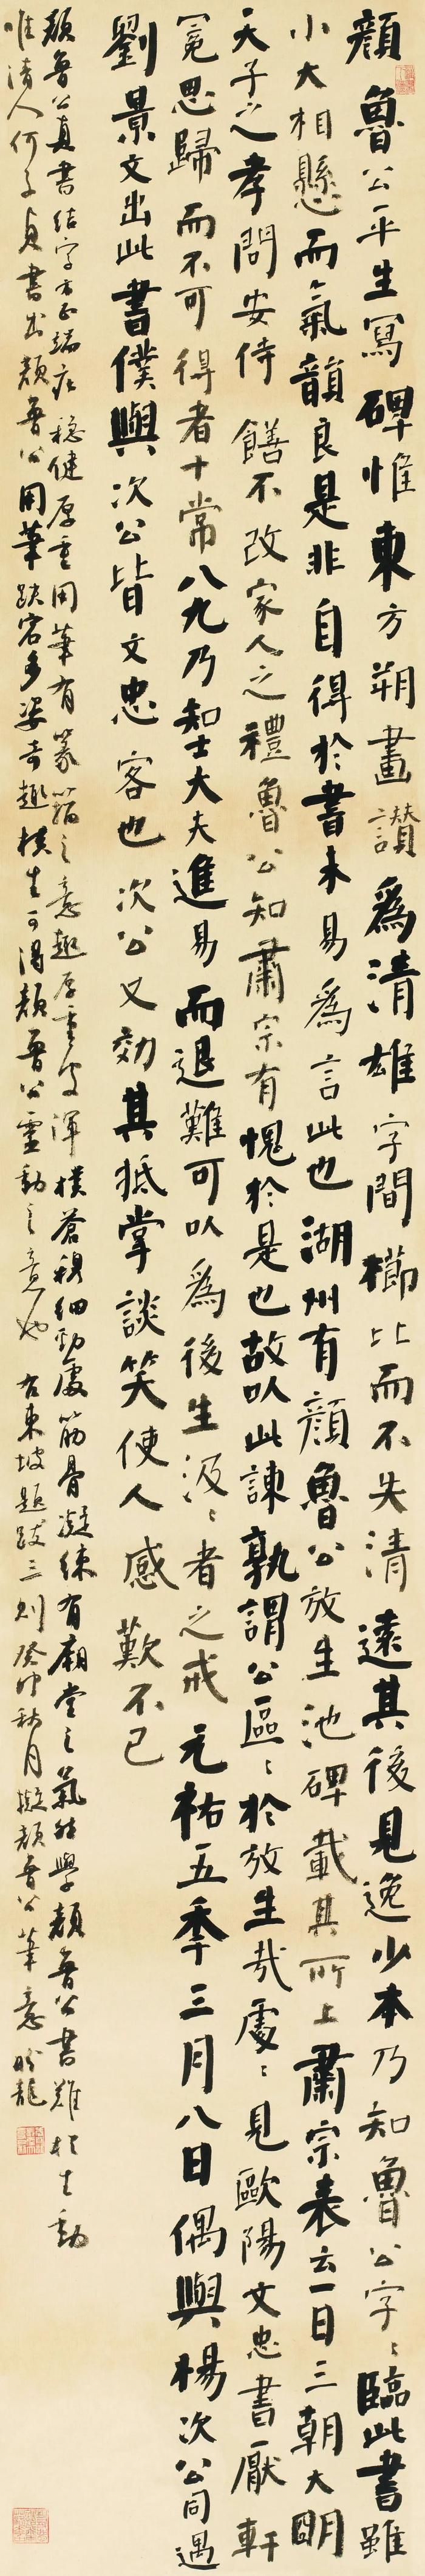 顏魯公平生寫碑惟東方朔畫讃爲清雄字間櫛比而不失清遠其後見逸少本乃知魯公字〻臨此書雖
小大相懸而氣韻良是非自得於書未易爲言此也湖州有顏魯公放生池碑載其所上肅宗表云一日三朝大明
天子之孝問安侍饍不改家人之禮魯公知肅宗有愧於是也故以此諫孰謂公區〻於放生哉處〻見歐陽文忠書厭軒
冕思歸而不可得者十常八九乃知士大夫進易而退難可以爲後生汲〻者之戒元祐五季三月八日偶與楊次公同過
劉景文出此書僕與次公皆文忠客也次公又効其抵掌談笑使人感歎不已
顏魯公真書結字方正端庄穩健厚重用筆有篆籀之意趣厚重安渾樸蒼穆细勁處筋骨凝练有廟堂之氣能學顏魯公書難於生動
唯清人何子貞書出顏魯公用筆跌宕多姿奇趣橫生可得顏魯公靈動之意也右東坡題跋三则癸卯秋月擬顏魯公筆意